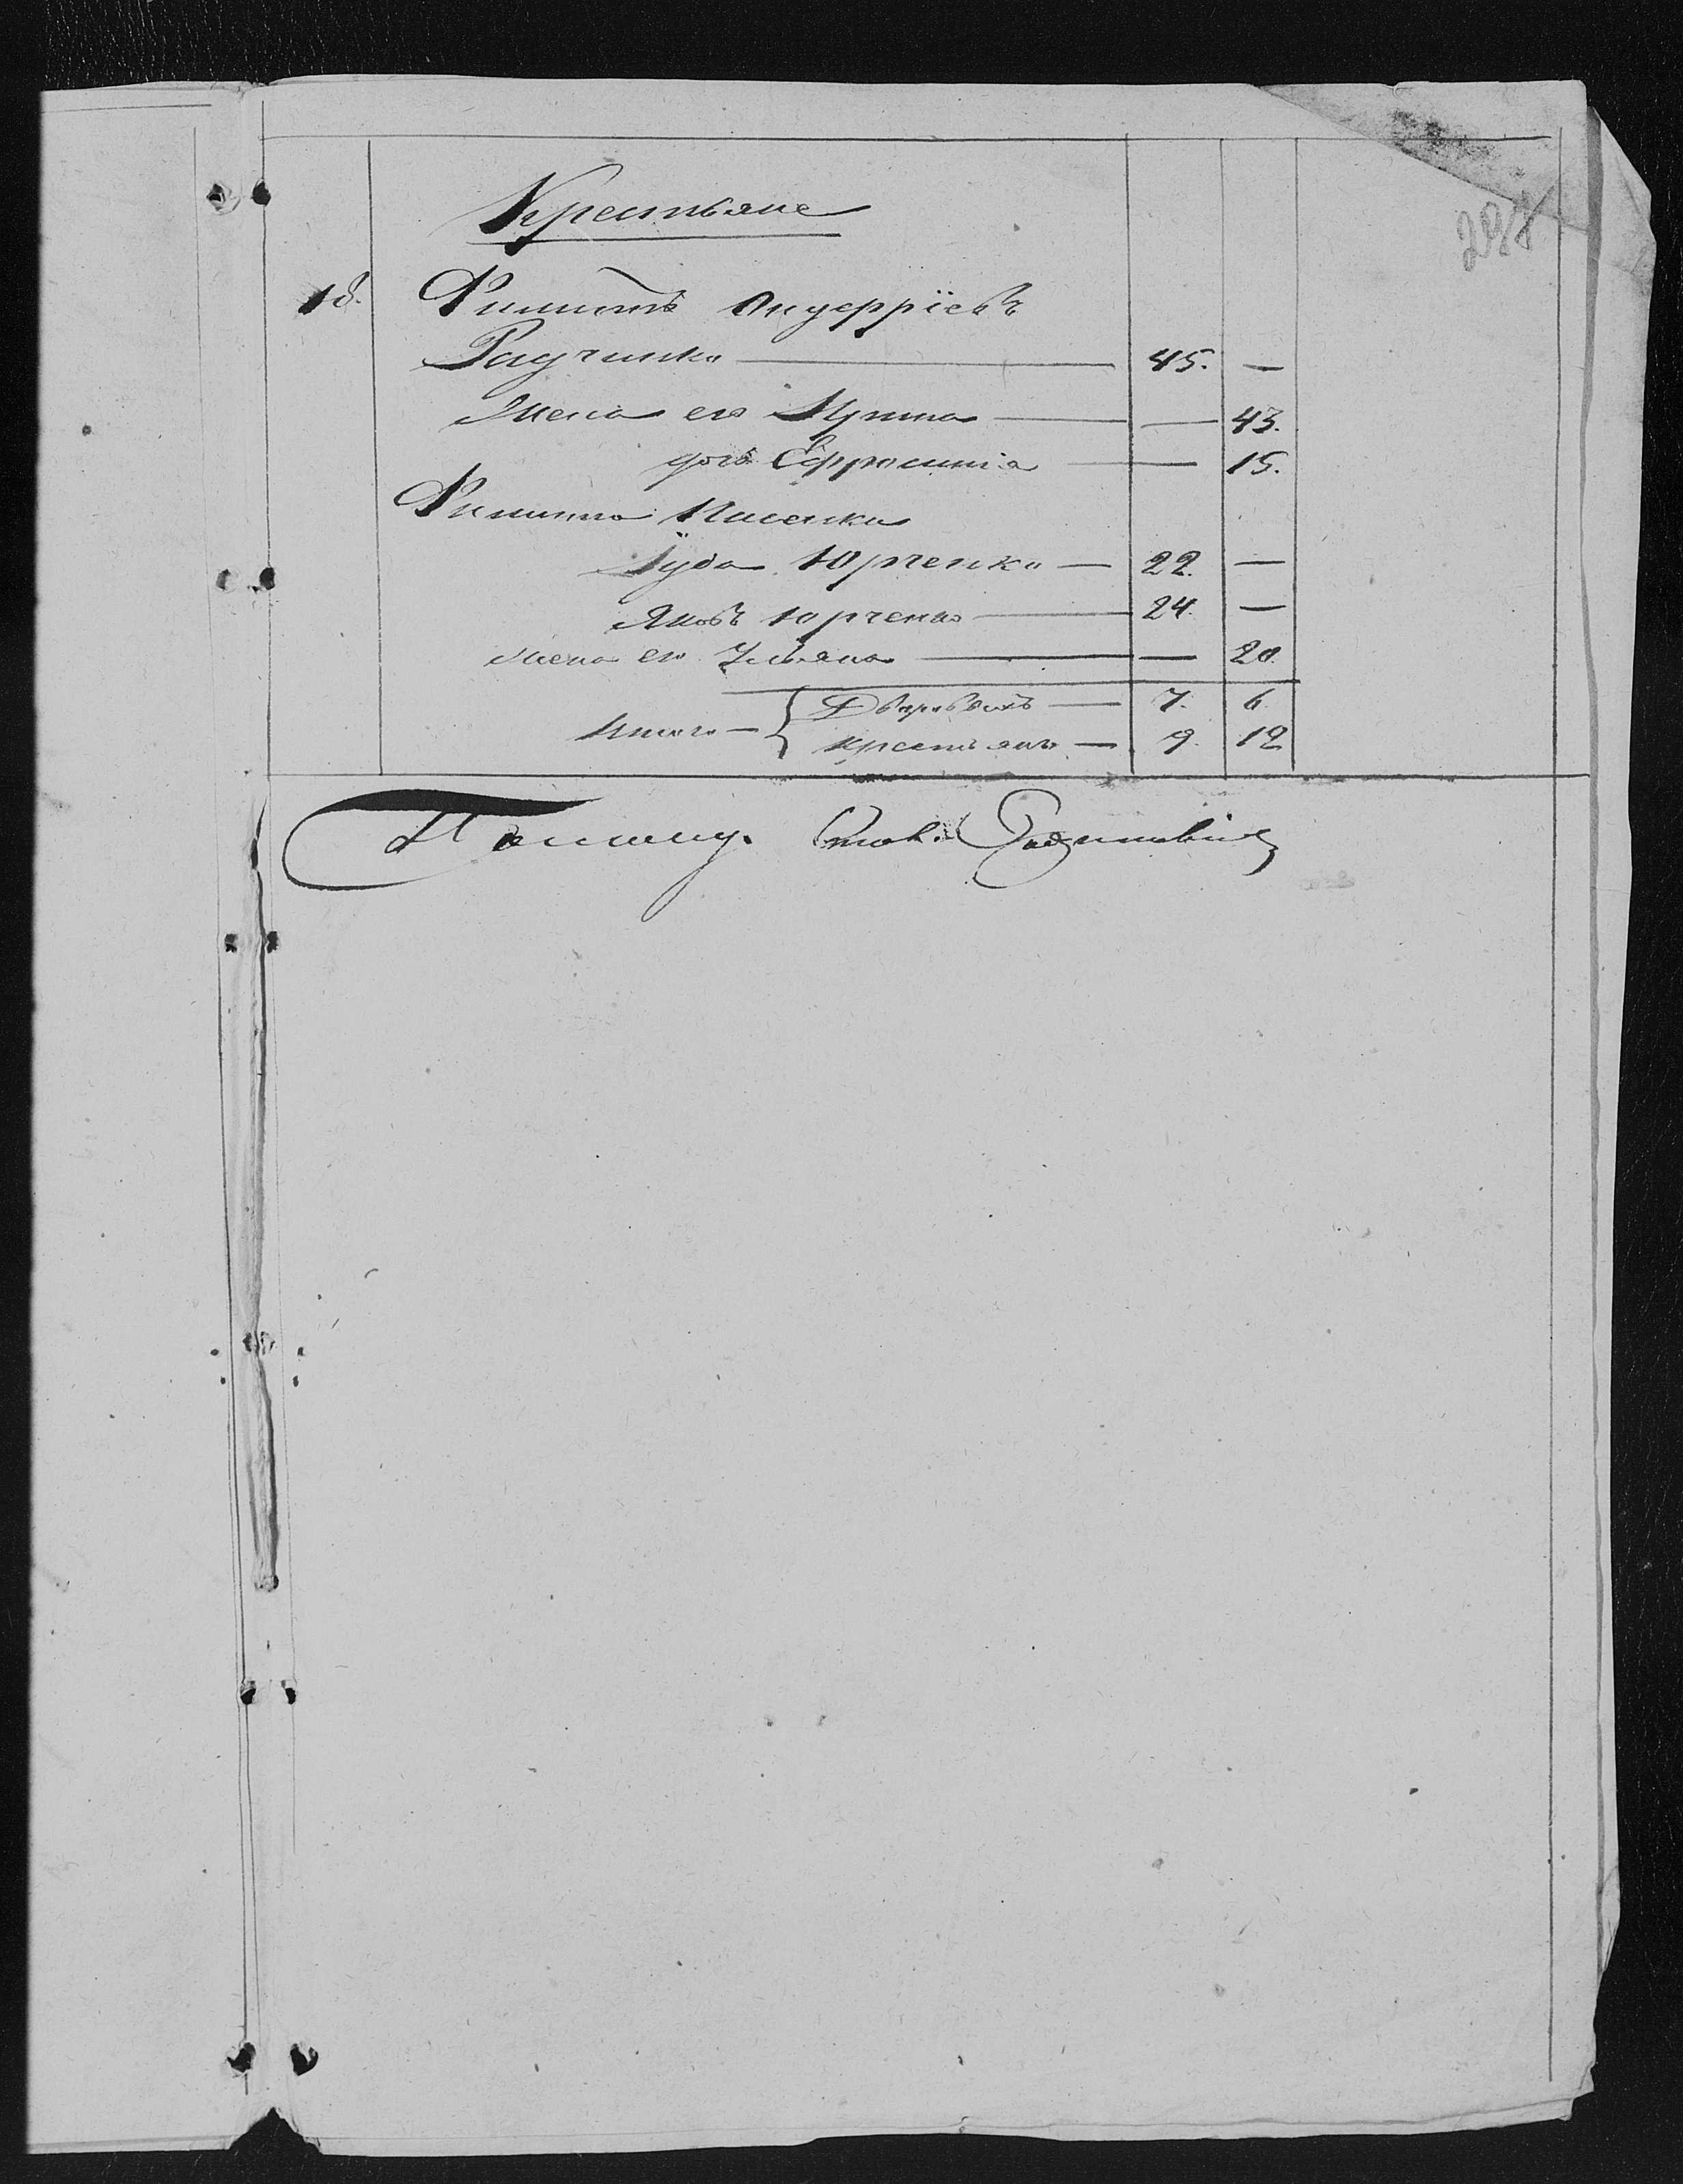 Крестьяне
18. Филиппъ Андерріевъ
Радченко — 45. —
Жена его Ирина — — 43.
дочь Ефросинія — — 15.
Филиппа Пасенки
Іуда Юрченко — 22. —
Яковъ Юрченко — 24. —
Жена его Ульяна — — 20.
Итого — { Дворовыхъ — 7. 6
Крестьянъ — 9. 12